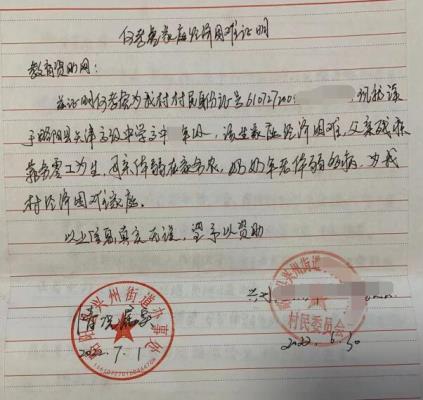 家庭经济困难证明
教育资助网:
兹证明何孝 为我村村民身份证号610727200 , 现就读
于略阳县天津高级中学高中 年级, 该生家庭经济困难, 父亲残疾
靠务零工为生, 母亲体弱在家务农, 奶奶年老体弱多病, 为我
村经济困难家庭。
以上信息真实无误, 望予以资助
兴州街道办事处
情况属实
2022. 7. 1
兴州街道
村民委员会
2022. 6. 30